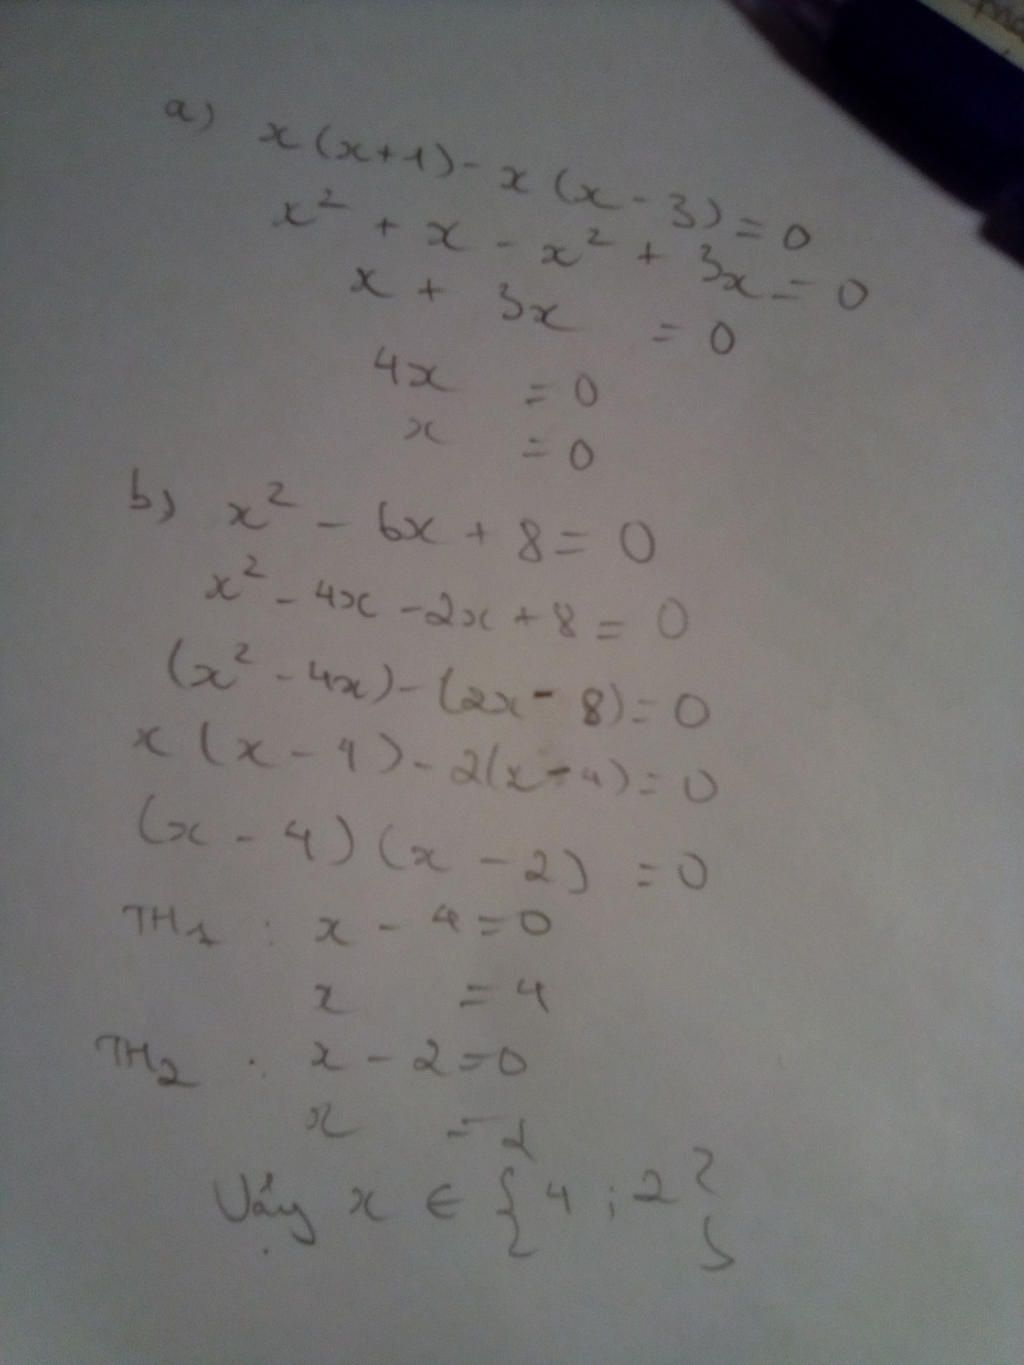 a) x(x+1) - x(x - 3) = 0
x² + x - x² + 3x = 0
x + 3x = 0
4x = 0
x = 0
b) x² - 6x + 8 = 0
x² - 4x - 2x + 8 = 0
(x² - 4x) - (2x - 8) = 0
x(x - 4) - 2(x - 4) = 0
(x - 4)(x - 2) = 0
TH1 : x - 4 = 0
x = 4
TH2 : x - 2 = 0
x = 2
Vậy x ∈ {4 ; 2}